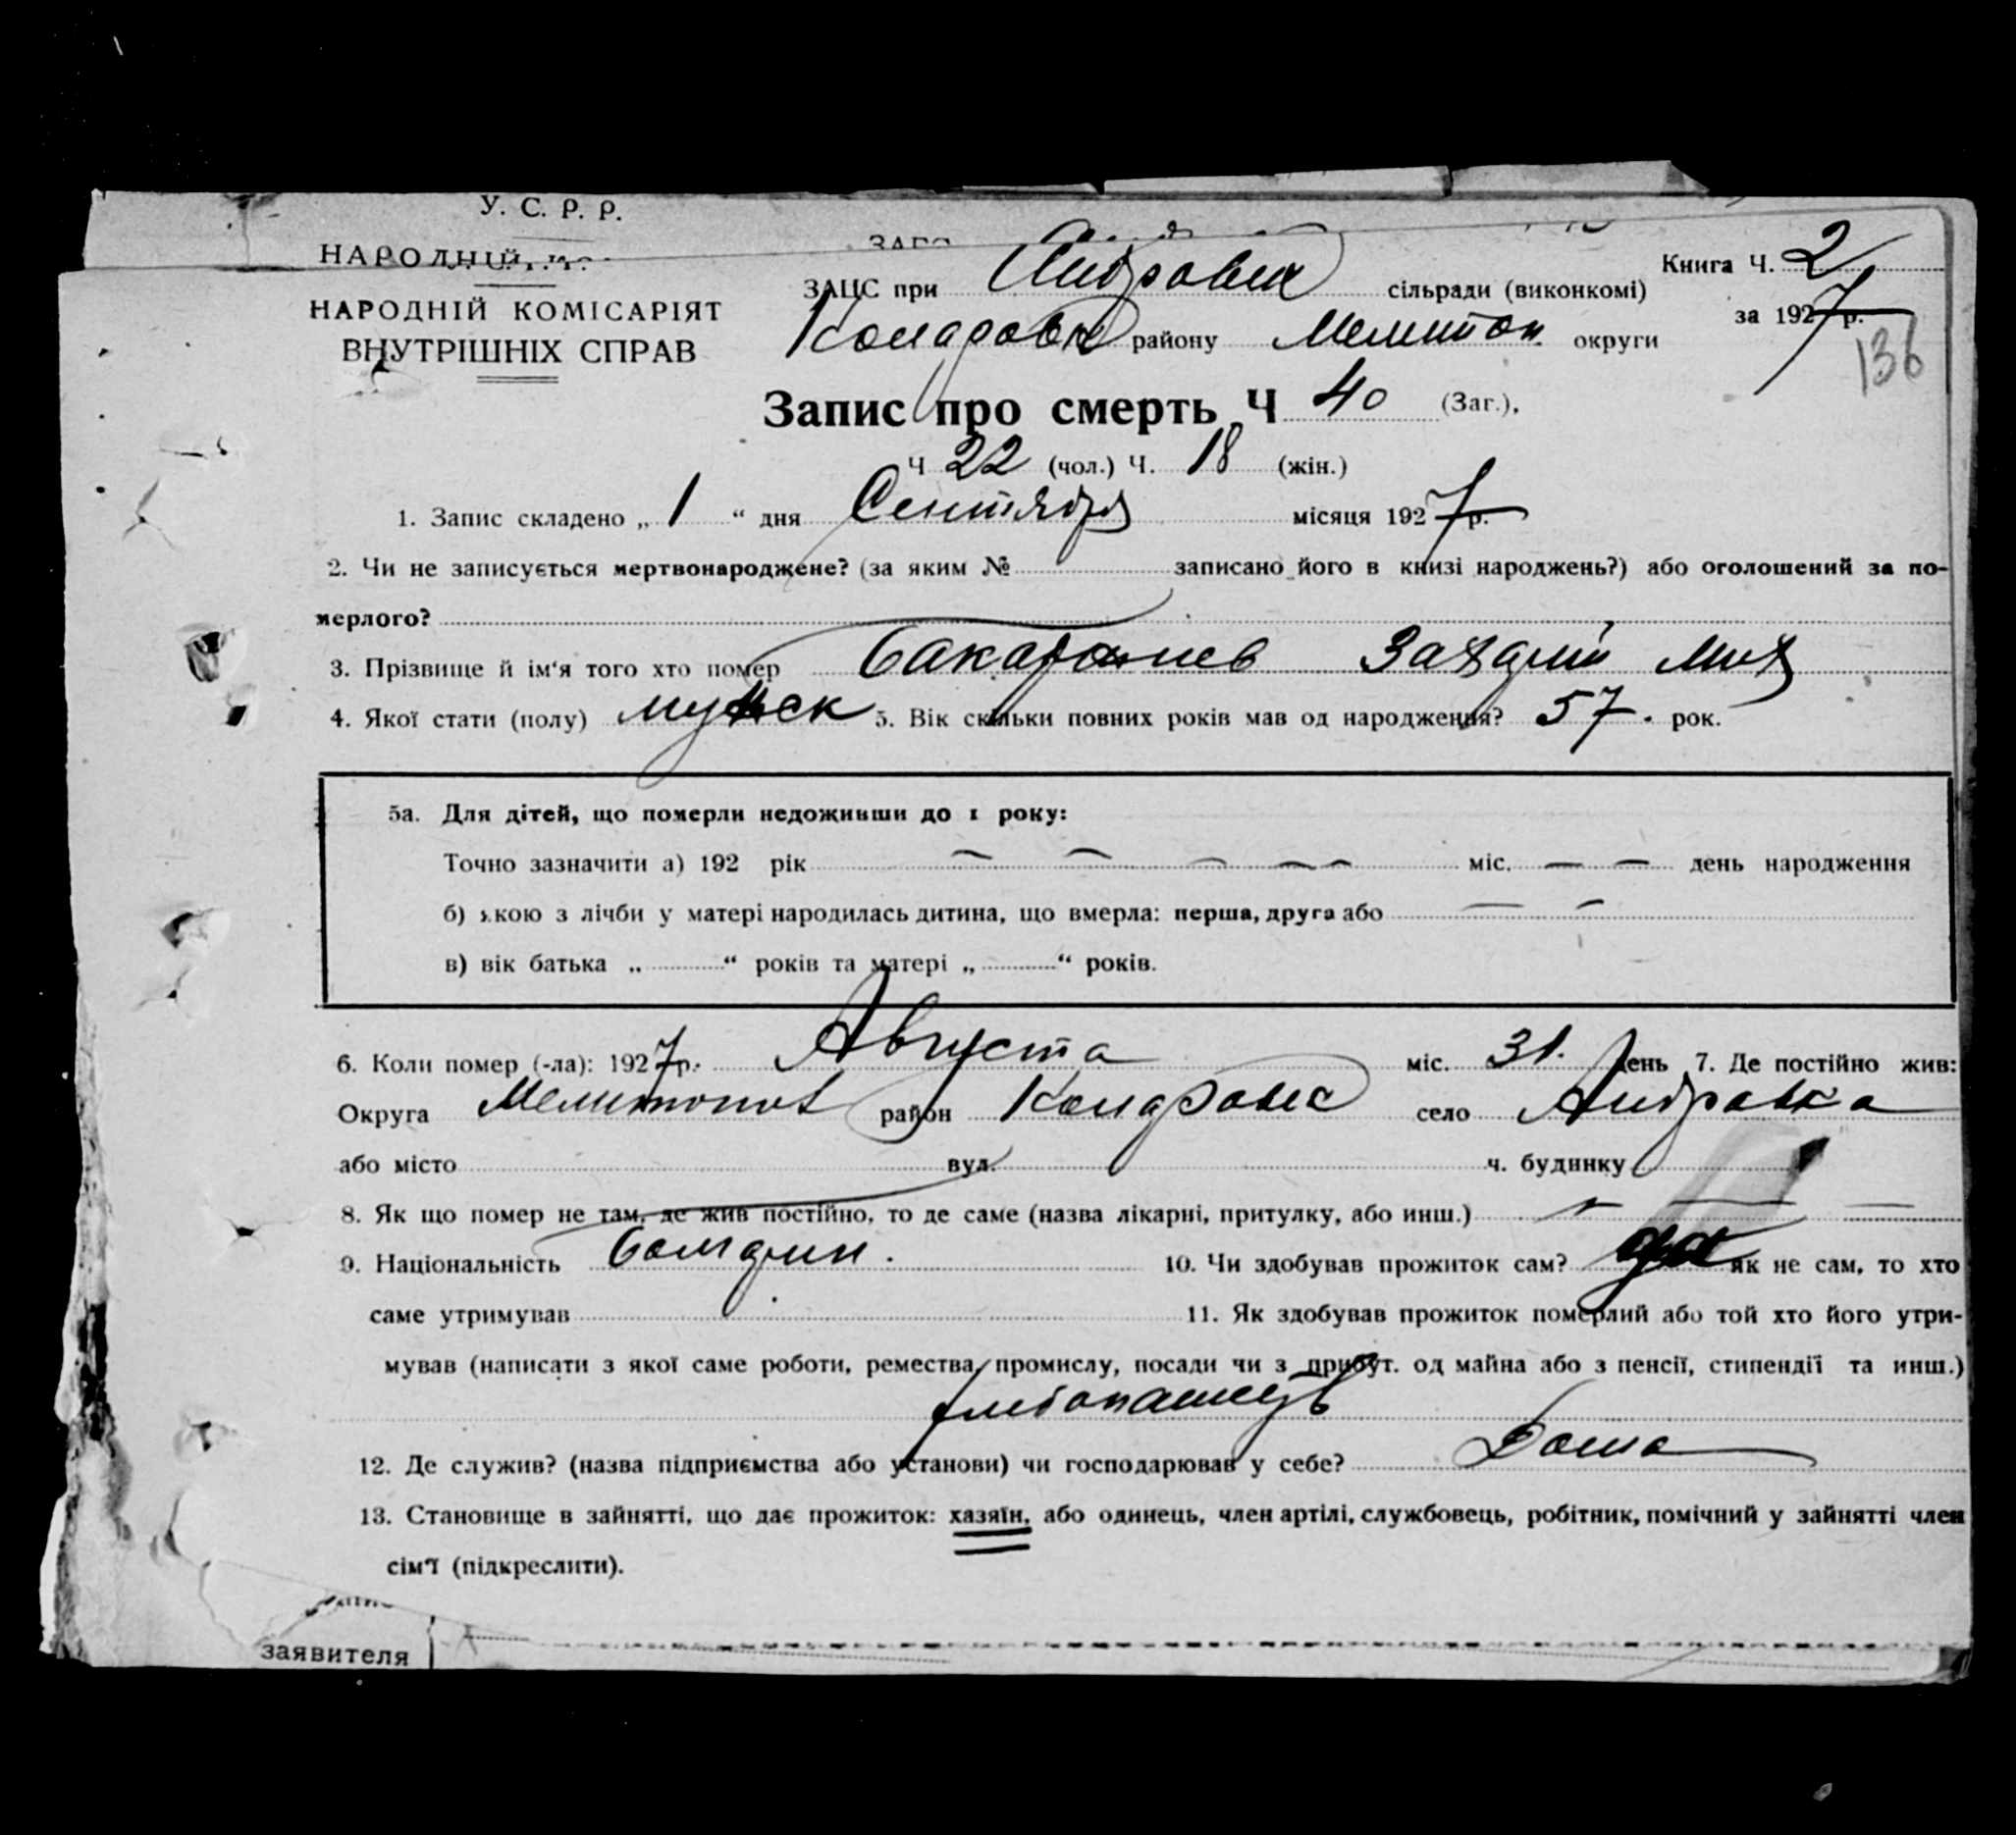 У. С. Р. Р.
НАРОДНІЙ
НАРОДНІЙ КОМІСАРІЯТ
ВНУТРІШНІХ СПРАВ
ЗАЦС при сільради (виконкомі)
Книга Ч. 2
району Мелитоп. округи
за 1927 р.
136
Запис про смерть Ч 40 (Заг.),
Ч 22 (чол.) Ч. 18 (жін.)
1. Запис складено „ 1 “ дня Сентября місяця 1927 р.
2. Чи не записується мертвонароджене? (за яким № записано його в книзі народжень?) або оголошений за по-
мерлого?
3. Прізвище й ім‘я того хто помер
4. Якої стати (полу) мужск 5. Вік скільки повних років мав од народження? 57. рок.
5а. Для дітей, що померли недоживши до 1 року:
Точно зазначити а) 192 рік — — — — — міс. — — день народження
б) якою з лічби у матері народилась дитина, що вмерла: перша, друга або — —
в) вік батька „ “ років та матері „ “ років.
6. Коли помер (-ла): 1927 р. Августа міс. 31. день 7. Де постійно жив:
Округа Мелитопол район село Андровка
або місто вул. ч. будинку
8. Як що помер не там, де жив постійно, то де саме (назва лікарні, притулку, або инш.) — — —
9. Національність Болгарин. 10. Чи здобував прожиток сам? да як не сам, то хто
саме утримував 11. Як здобував прожиток померлий або той хто його утри-
мував (написати з якої саме роботи, ремества, промислу, посади чи з прибут. од майна або з пенсії, стипендії та инш.)
хлебопашеств
12. Де служив? (назва підприємства або установи) чи господарював у себе? Дома
13. Становище в зайнятті, що дає прожиток: хазяїн, або одинець, член артілі, службовець, робітник, помічний у зайнятті член
сім‘ї (підкреслити).
заявителя